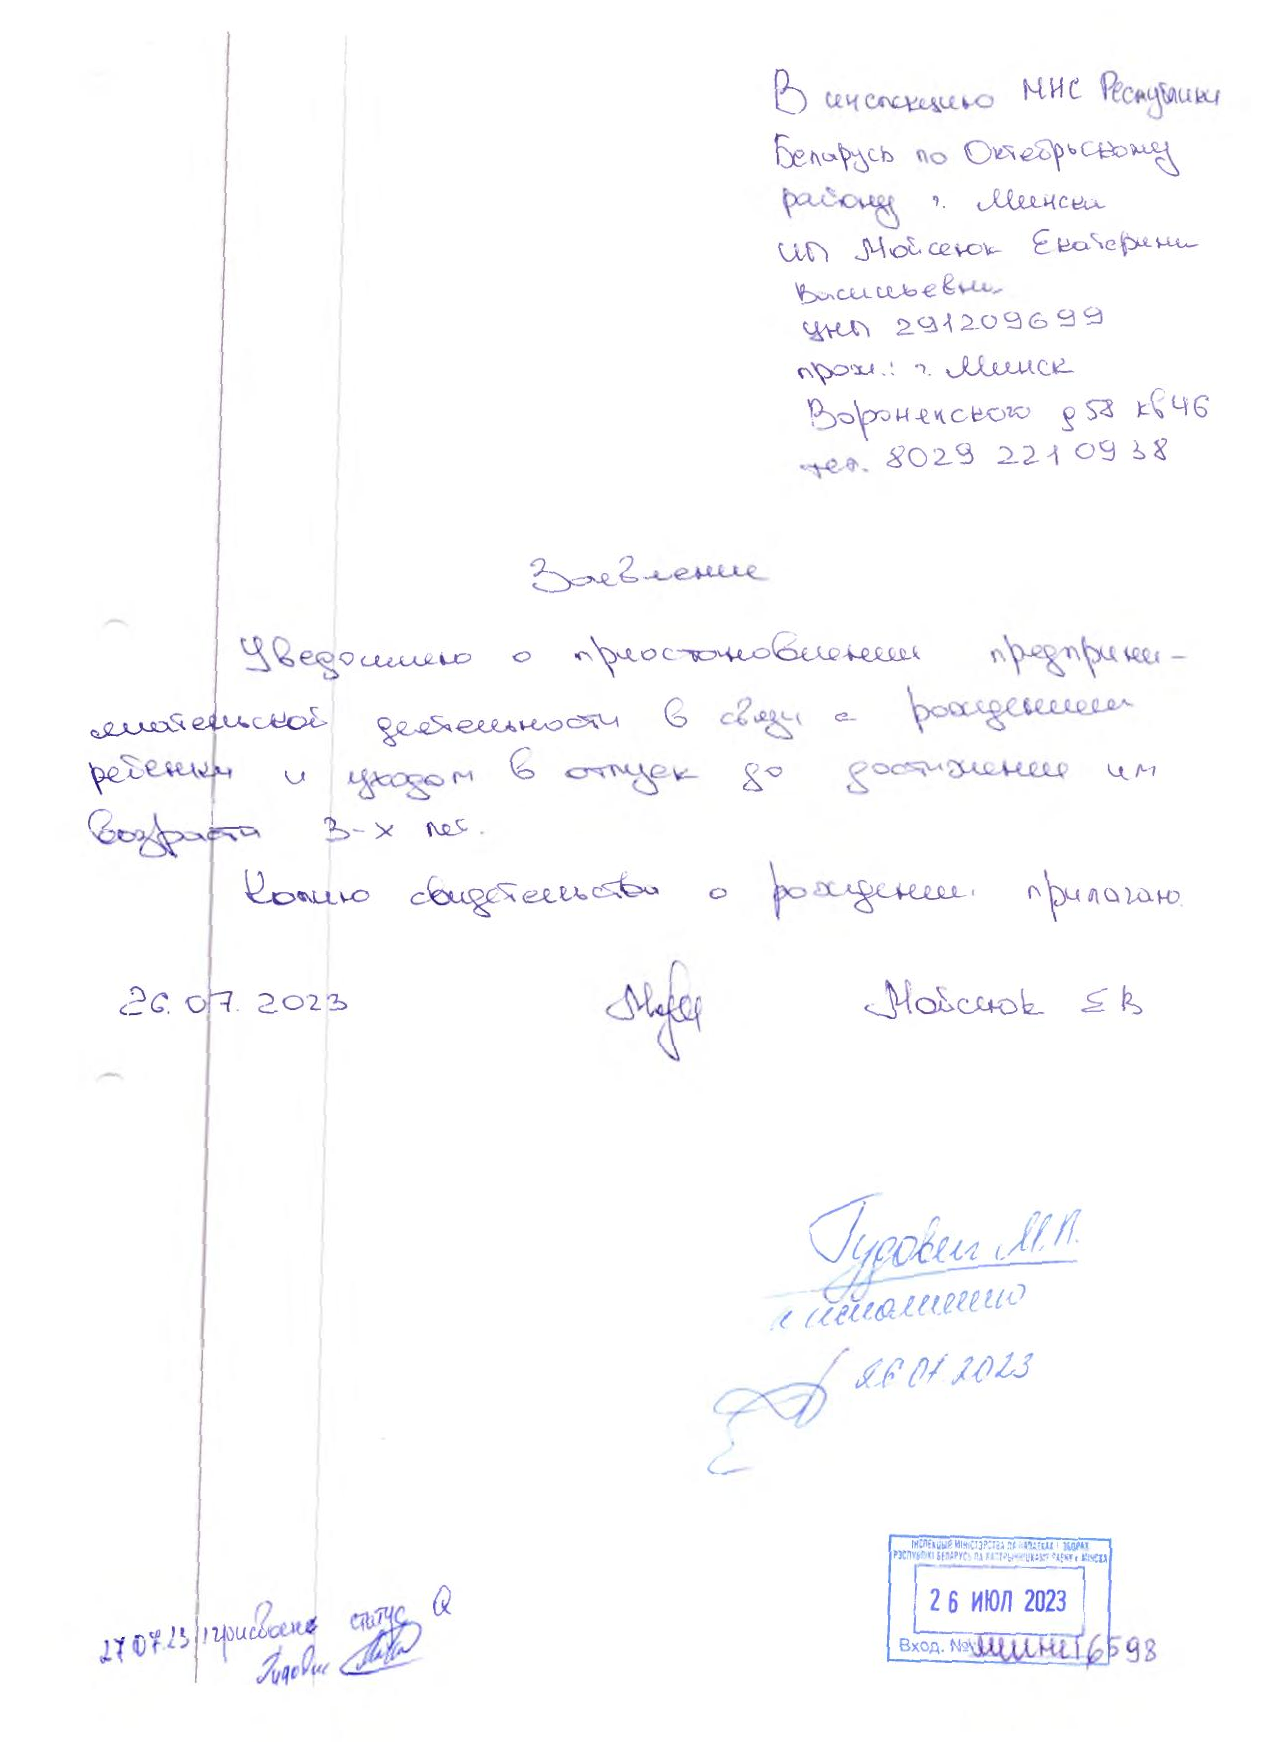 В инспекцию МНС Республики
Беларусь по Октябрьскому
району г. Минска
ИП Мойсеюк Екатерины
Васильевны
УНП 291209699
прож.: г. Минск
Воронянского д 58 кв 46
тел. 8029 221 09 38
Заявление
Уведомляю о приостановлении предприни-
мательской деятельности в связи с рождением
ребенка и уходом в отпуск до достижения им
возраста 3-х лет.
Копию свидетельства о рождении прилагаю
26.07.2023 Мойсеюк Е В
Гудович М.П.
к исполнению
26 07 2023
ІНСПЕКЦЫЯ МІНІСТЭРСТВА ПА ПАДАТКАХ І ЗБОРАХ
РЭСПУБЛІКІ БЕЛАРУСЬ ПА КАСТРЫЧНІЦКАМУ РАЁНУ г. МІНСКА
26 ИЮЛ 2023
Вход. № 16598
27.07.23 присвоен статус Q
Гудович